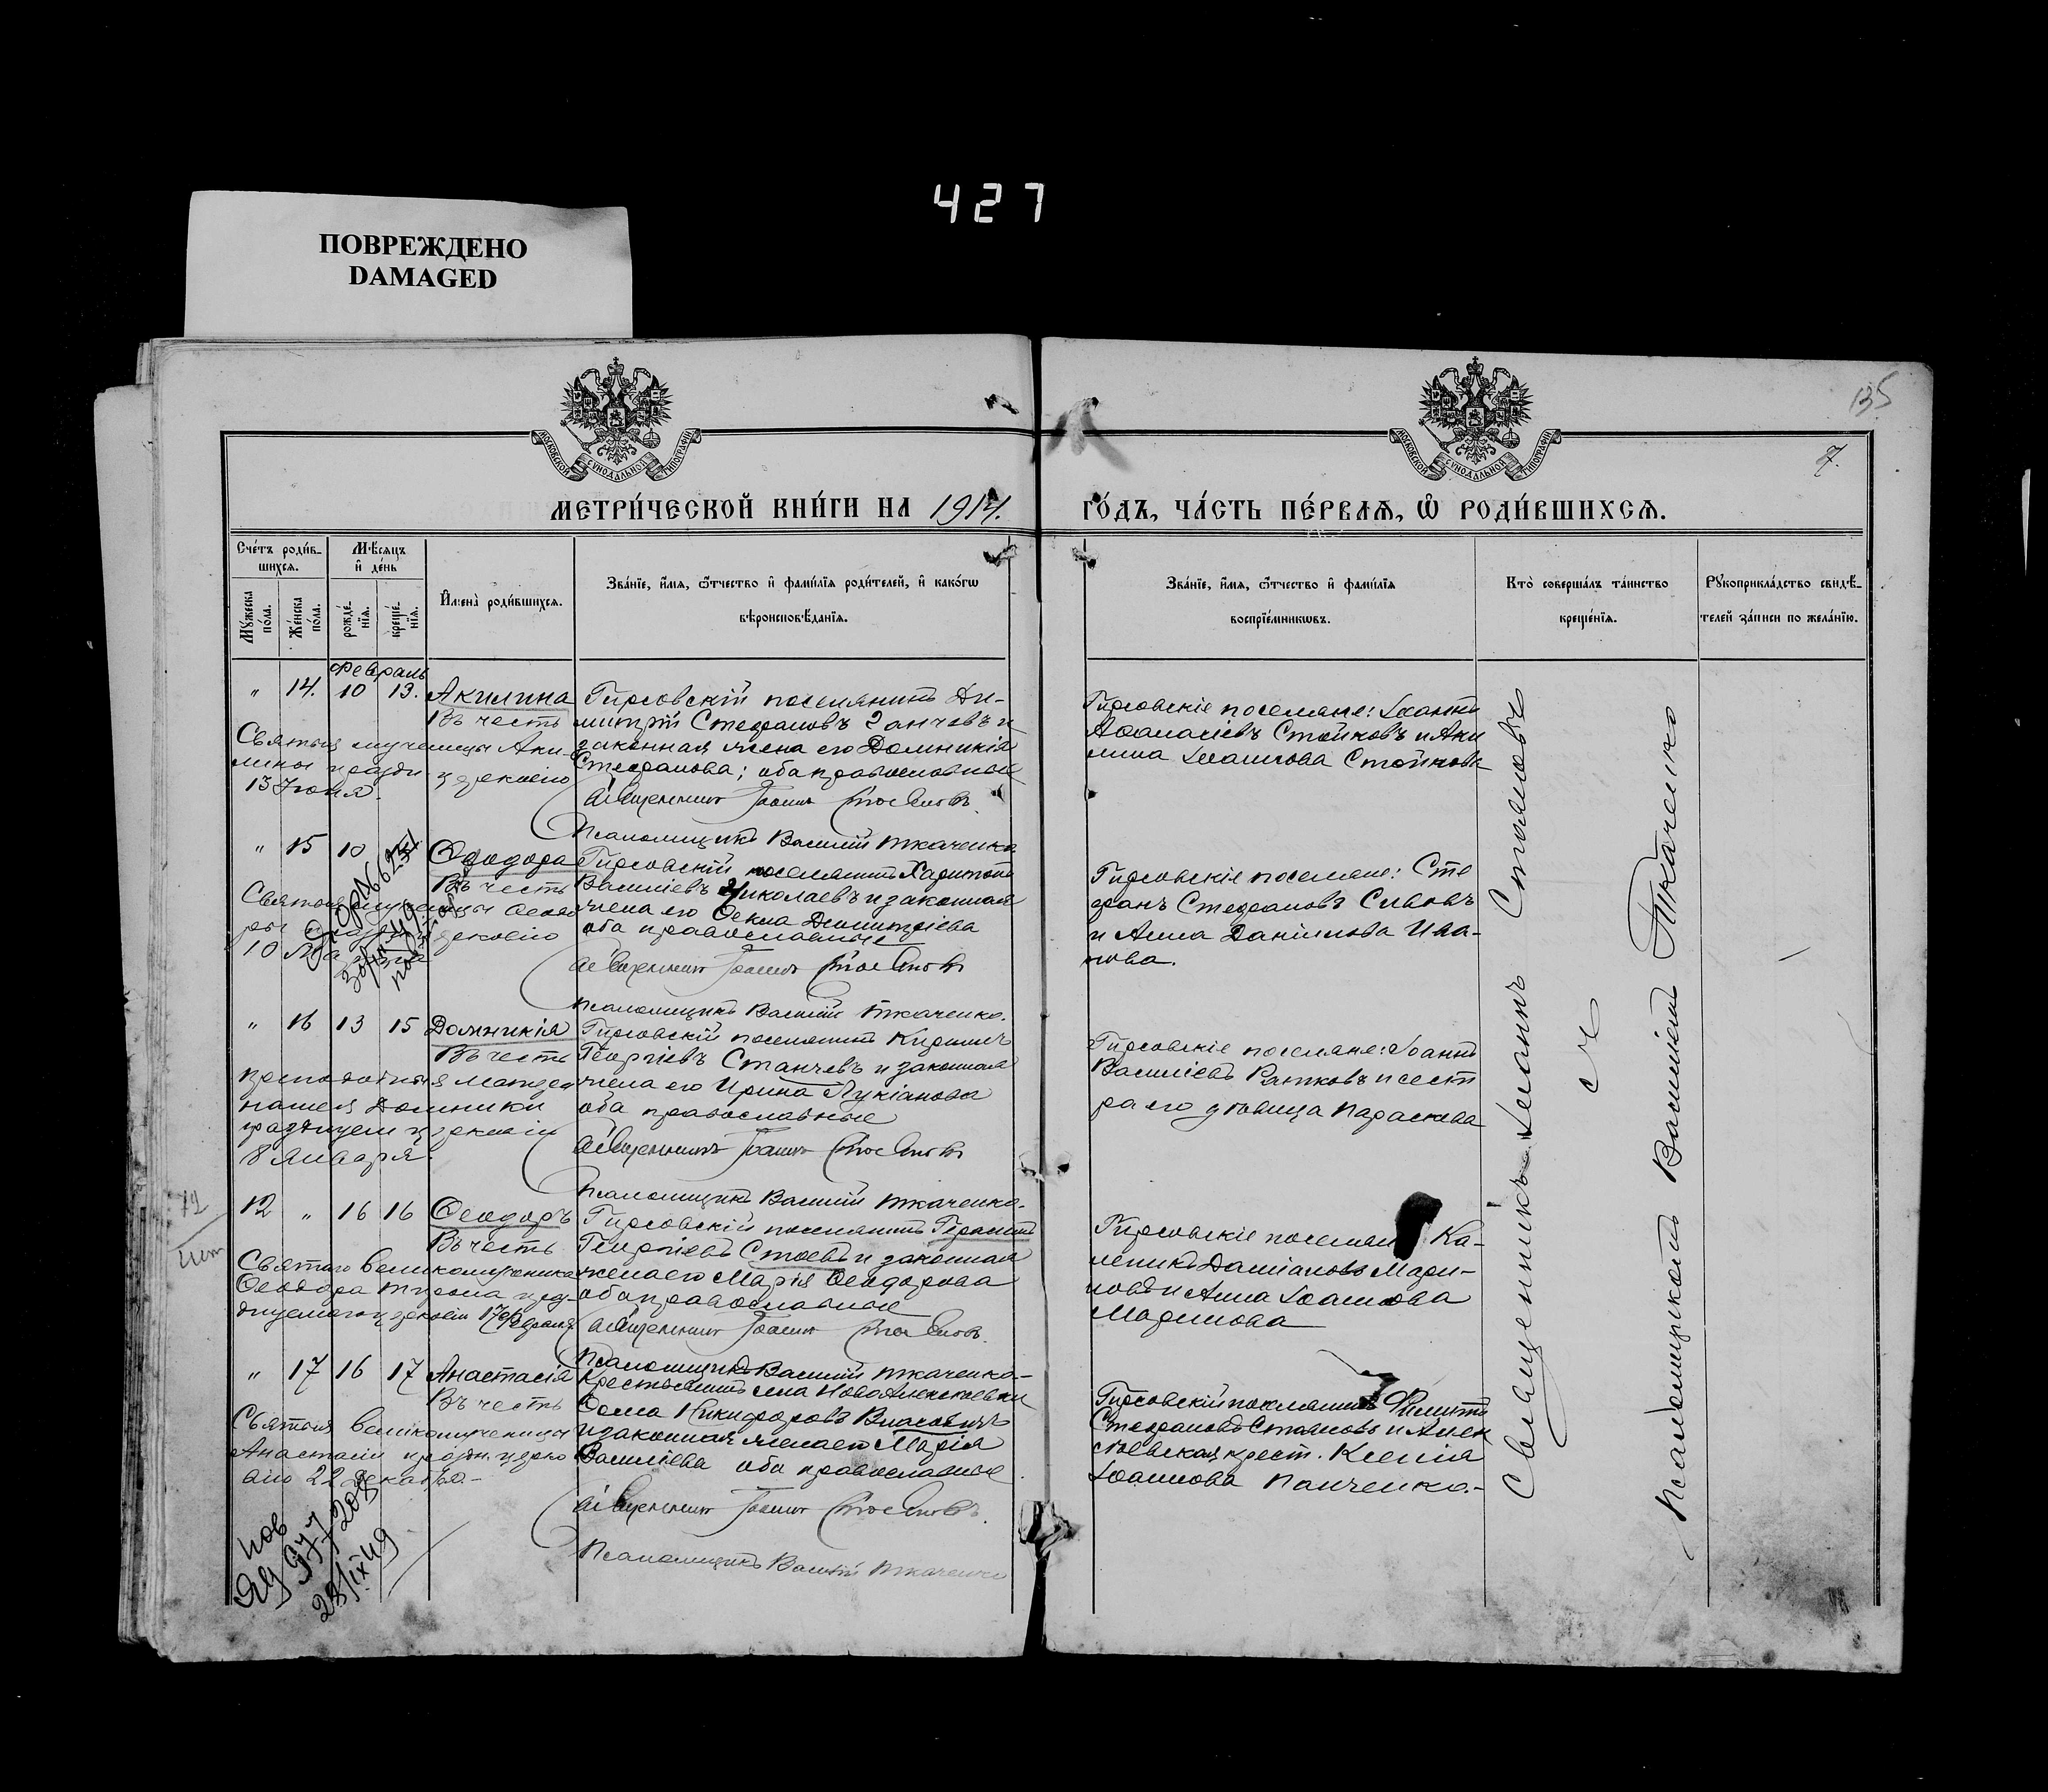 427
ПОВРЕЖДЕНО
DAMAGED
135
7.
МОСКОВСКОЙ СѴНОДАЛЬНОЙ ТИПОГРАФІИ
МОСКОВСКОЙ СѴНОДАЛЬНОЙ ТИПОГРАФІИ
МЕТРИ́ЧЕСКОЙ КНИ́ГИ НА 1914.
ГО́ДЪ, ЧА́СТЬ ПЕ́РВАѦ, Ѽ РОДИ́ВШИХСѦ.
Сче́тъ роди́в-
шихся.
Мѣсяцъ
и̂ де́нь
Мꙋ́жеска
по́ла.
Же́нска
по́ла.
рожде́-
нїя.
креще́-
нїя.
И̂мена̀ роди́вшихся.
Зва́нїе, и̂́мя, ѻ҆́тчество и̂ фами́лїя роди́телей, и̂ како́гѡ
вѣроисповѣ́данїя.
Зва́нїе, и̂́мя, ѻ҆́тчество и̂ фами́лїя
воспрїе́мникѡвъ.
Кто̀ соверша́лъ та́инство
креще́нїя.
Рꙋкоприкла́дство свидѣ́-
телей за́писи по жела́нїю.
Февраль
" 14. 10 13. Акилина
Въ честь
Святыя мученицы Аки-
лины праздн. церковію
13 Іюня.
Гирсовскій поселянинъ Ди-
митрій Стефановъ Ганчевъ и
законная жена его Домникія
Стефанова; оба православные
Священникъ Іоаннъ Стояновъ
Псаломщикъ Василій Ткаченко
Гирсовскіе поселяне: Іоаннъ
Афанасіевъ Стойковъ и Аки
лина Іоаннова Стойкова
" 15 10 Ѳеодора
Въ честь
Святыя мученицы Ѳеодо
церковію
10
Гирсовскій поселянинъ Харитонъ
Василіевъ Николаевъ и законная
жена его Ѳекла Димитріева
оба православные
Священникъ Іоаннъ Стояновъ
Псаломщикъ Василій Ткаченко.
Гирсовскіе поселяне: Сте
фанъ Стефановъ Сивовъ
и Анна Даніилова Ива-
нова.
" 16 13 15 Домникія
Въ честь
Преподобныя Матери
нашея Домники
праздуем церковію
8 Января.
Гирсовскій поселянинъ Кириллъ
Георгіевъ Станчевъ и законная
жена его Ирина Лукіанова
оба православные
Священникъ Іоаннъ Стояновъ
Псаломщикъ Василій Ткаченко.
Гирсовскіе поселяне: Іоаннъ
Василіевъ Ратковъ и сест
ра его дѣвица Параскева
12
12 " 16 16 Ѳеодоръ
Въ честь
Святаго великомученика
Ѳеодора Тирона праз-
днуемаго церковію 17 февраля
Гирсовскій поселянинъ Герасимъ
Георгіевъ Стоевъ и законная
жена его Марія Ѳеодорова
оба православные
Священникъ Іоаннъ Стояновъ.
Псаломщикъ Василій Ткаченко
Гирсовскіе поселяне Ка-
леникъ Даміановъ Мари-
новъ и Анна Іоаннова
Маринова
" 17 16 17 Анастасія
Въ честь
Святыя великомученицы
Анастасіи праздн. церко
вію 22 декабря.-
Крестьянинъ села НовоАлексѣевки
Ѳома Никифоровъ Власовичъ
и законная жена его Марія
Василіева оба православные
Священникъ Іоаннъ Стояновъ.
Псаломщикъ Василій Ткаченко
Гирсовскій поселянинъ Филиппъ
Стефановъ Стояновъ и Алек
сѣевская крест. Ксенія
Іоаннова Панченко.-
пов
ЯЦ 977208
28/IX 49
Священникъ Іоаннъ Стояновъ
съ
Псаломщикомъ Василіемъ Ткаченко